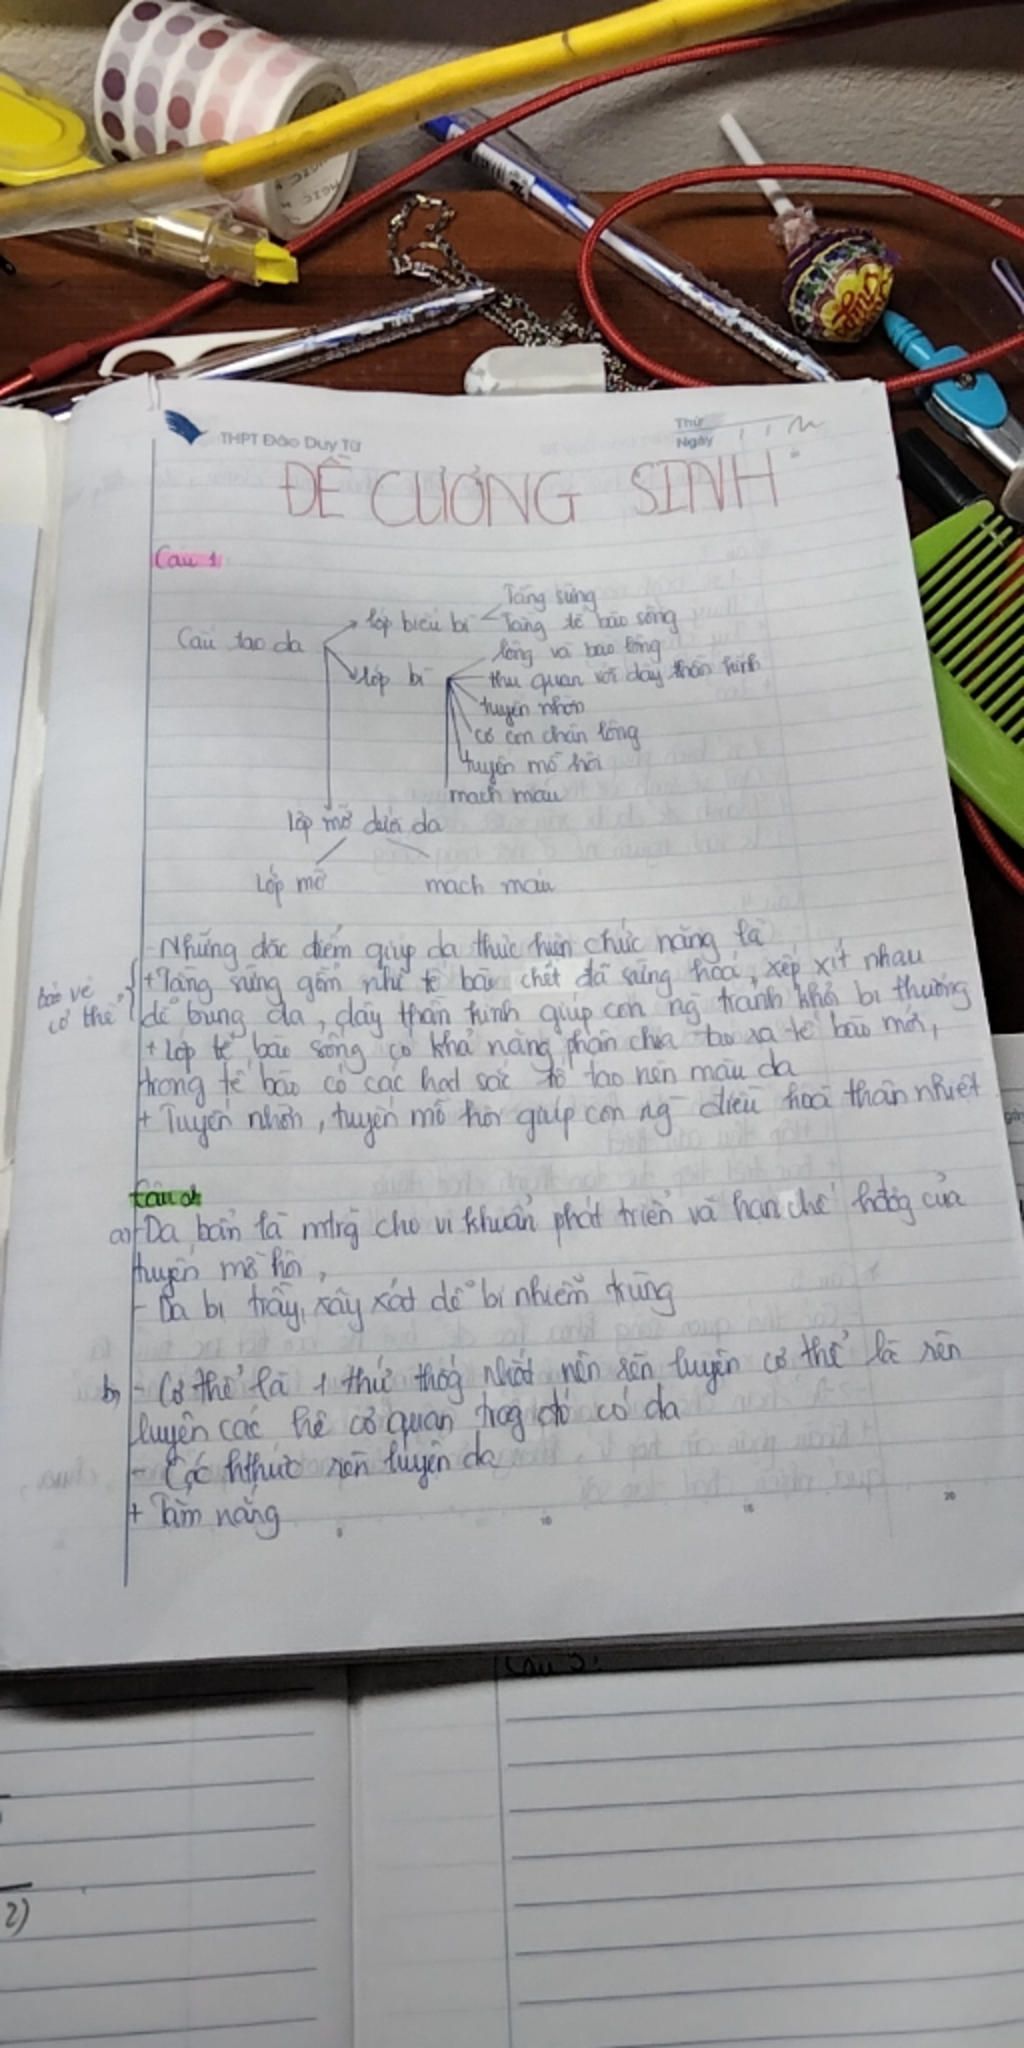 THPT Đào Duy Từ
Thứ
Ngày
ĐỀ CƯƠNG SINH
Câu 1
Cấu tạo da
lớp biểu bì
Tầng sừng
Tầng tế bào sống
lớp bì
lông và bao lông
thụ quan với dây thần kinh
tuyến nhờn
cơ co chân lông
tuyến mồ hôi
mạch máu
lớp mỡ dưới da
Lớp mỡ
mạch máu
- Những đặc điểm giúp da thực hiện chức năng là
bảo vệ cơ thể
+ Tầng sừng gồm nhữ tế bào chết đã sừng hoá, xếp xít nhau
dễ bung da, dây thần kinh giúp con ng tránh khỏi bị thương
+ Lớp tế bào sống có khả năng phân chia tạo ra tế bào mới,
trong tế bào có các hạt sắc tố tạo nên màu da
+ Tuyến nhờn, tuyến mồ hôi giúp con ng điều hoà thân nhiệt
Câu 2
a) - Da bẩn là mtrg cho vi khuẩn phát triển và hạn chế hđộg của
tuyến mồ hôi,
- Da bị trầy, xây xát dễ bị nhiễm trùng
b) - Cơ thể là 1 thứ thốg nhất nên rèn luyện cơ thể là rèn
luyện các hệ cơ quan trog đó có da
- Các hthức rèn luyện da
+ Tắm nắng
5 10 15 20
2)